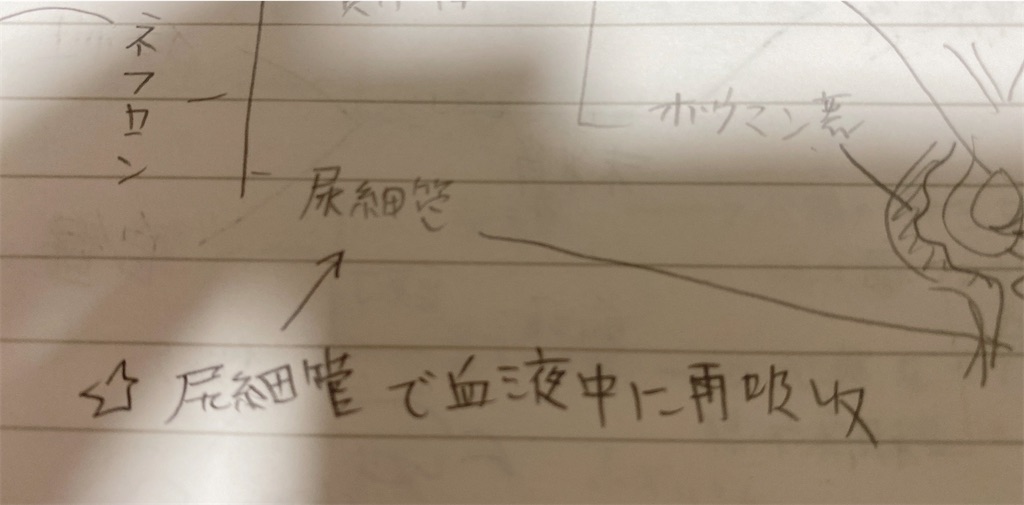 ネフロン
ボウマン嚢
尿細管
☆ 尿細管で血液中に再吸収